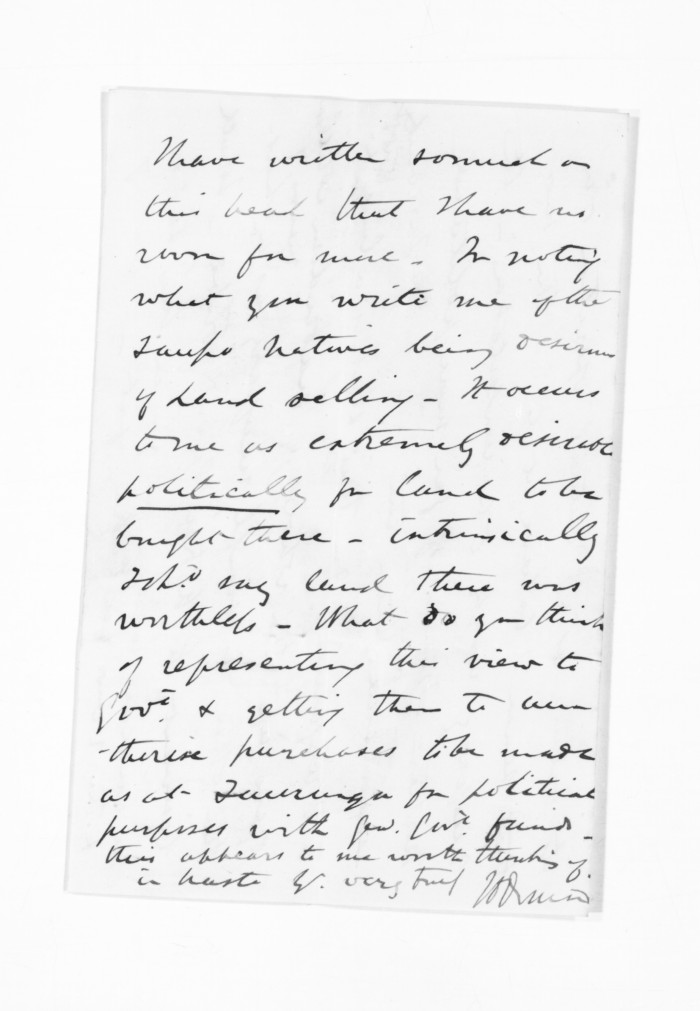 I have written so much on
this head that I have no
room for more - In noting
what you write me of the
Taupo Natives being desirous
of Land selling - It occurs
to me as extremely desirable
politically for land to be
bought there - intrinsically
I shd. say land there was
worthless - What do you think
of representing this view to
Govt. & getting them to au
-thorise purchases to be made
as at Tauranga for political
purposes with Gen. Govt. funds -
this appears to me worth thinking of.
in haste Yr. very truly